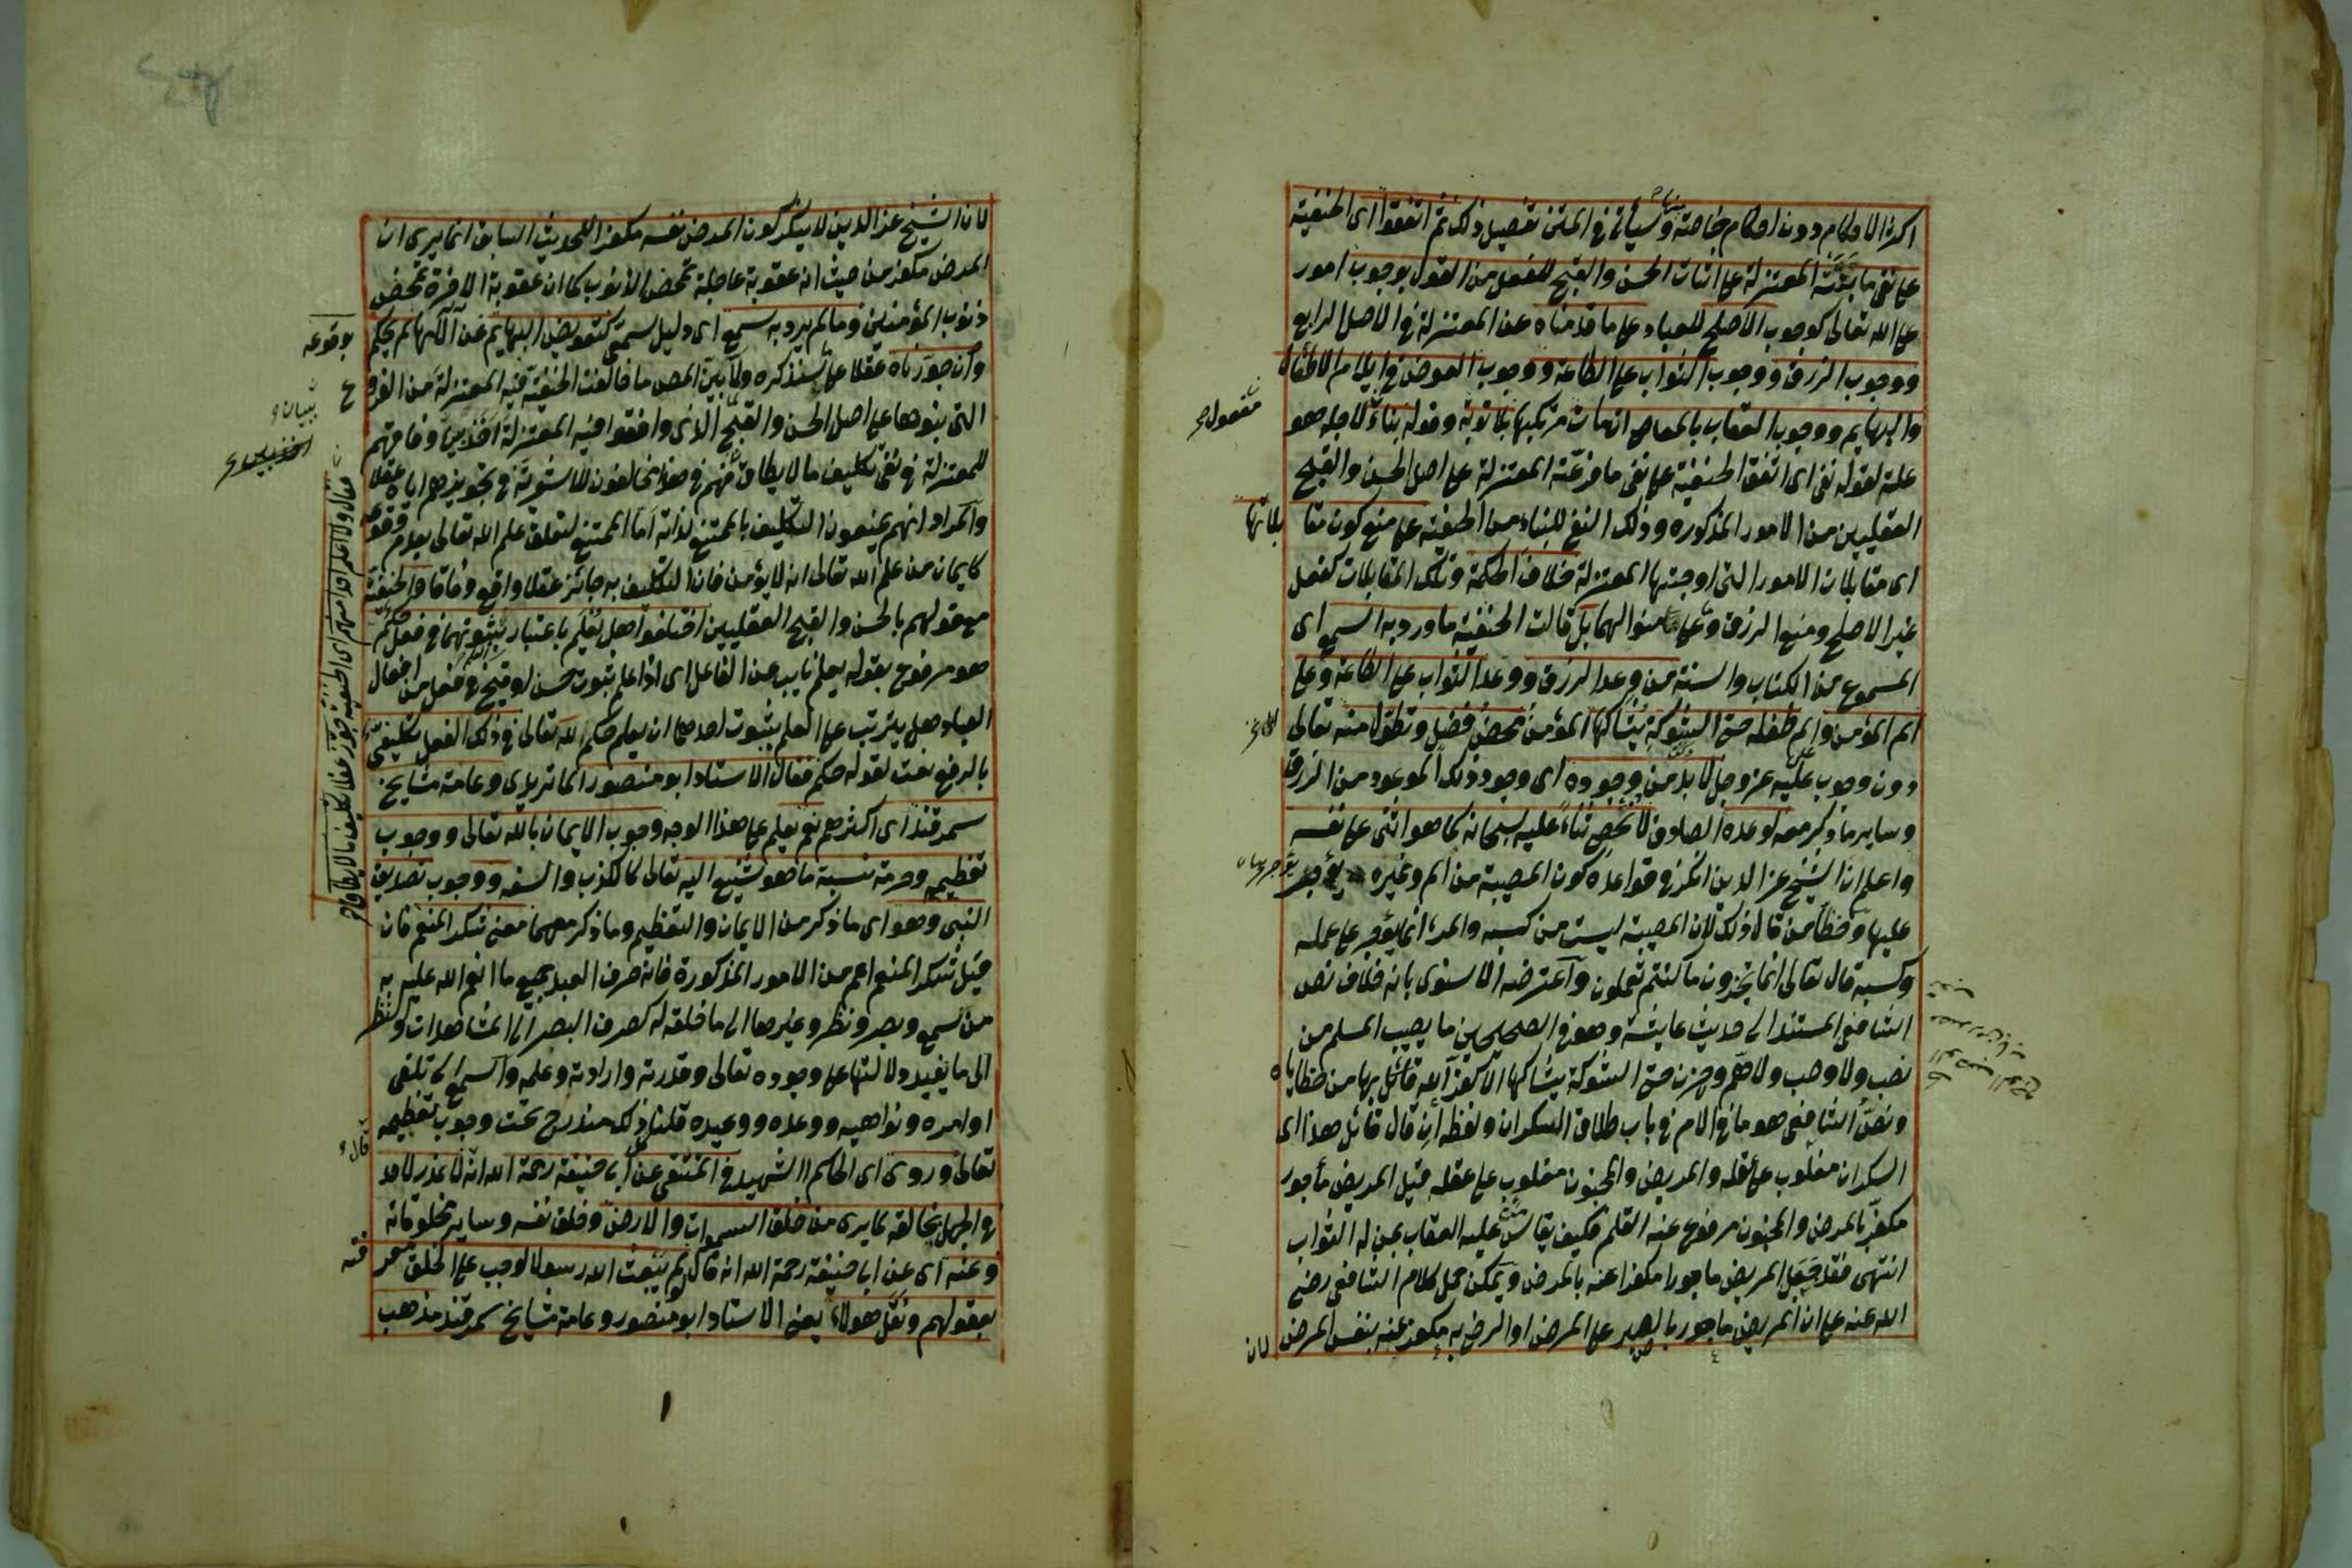 اكثر الاحكام دون احكام خاصة وسيأتي في المتن تفصيل ذلك ثم اتفقوا اى الحنفية
على نفى ما بنته المعتزلة على اثبات الحسن والقبح للفعل من القول بوجوب امور
على الله تعالى كوجوب الاصلح للعباد على ما قدمناه عن المعتزلة في الاصل الرابع
ووجوب الرزق ووجوب الثواب على الطاعة ووجوب العوض في ايلام الاطفال
والبهايم ووجوب العقاب بالمعاصى ان مات مرتكبها بلا توبة وقوله بناء لاجله هو
مفعول
علة لقوله نفى اى اتفق الحنفية على نفى ما فرعته المعتزلة على اصل الحسن والقبح
العقليين من الامور المذكوره وذلك النفى للبناء من الحنفية على منع كون مقا
بلاتها
اى مقابلات الامور التى اوجبتها المعتزلة خلاف الحكمة وتلك المقابلات كفعل
غير الاصلح ومنع الرزق وعلى منوالهما بل قالت الحنفية ما ورد به السمع اى
المسموع من الكتاب والسنة من وعد الرزق ووعد الثواب على الطاعة وعلى
الم المؤمن والم طفله حتى الشوكة يشاكها المؤمن محض فضل وتطول منه تعالى
دون وجوب عليه عز وجل لا بد من وجوده اى وجود ذلك الموعود من الرزق
وساير ما ذكر معه لوعده الصادق لا نحصى ثناء عليه سبحانه كما هو اثنى على نفسه
واعلم ان الشيخ عز الدين انكر في قواعده كون المصيبة من الم وغيره يؤجر
عليها وخطأ من قال ذلك لان المصيبة ليست من كسبه والمرء انما يؤجر على عمله
وكسبه قال تعالى انما تجزون ما كنتم تعملون واعترضه الاسنوى بانه خلاف نص
الشافعى المستند الى حديث عايشة وهو في الصحيحين ما يصيب المسلم من
نصب ولا وصب ولا هم وحزن حتى الشوكة يشاكها الا كفر الله بها من خطاياه
ونص الشافعى هو ما في الام في باب طلاق السكران ولفظه ان قال قائل هذا اى
السكران مغلوب على عقله والمريض والمجنون مغلوب على عقله قيل المريض مأجور
مكفر بالمرض والمجنون مرفوع عنه القلم فكيف يقاس من عليه العقاب بمن له الثواب
انتهى فقد جعل المريض ماجورا مكفرا عنه بالمرض ويمكن حمل كلام الشافعى رضى
الله عنه على ان المريض ماجور بالصبر على المرض او الرضى به مكفر عنه بنفس المرض
لان
لان الشيخ عز الدين لا ينكر كون المرض نفسه مكفرا للحديث السابق انما يرى ان
المرض مكفر من حيث انه عقوبة عاجلة تمحض الذنوب كما ان عقوبة الاخرة تمحض
ذنوب المؤمنين وما لم يرد به سمع اى دليل سمعى كتعويض البهايم عن آلامها لم يحكم
بوقوعه
وان جوزناه عقلا على ما سنذكره ولما بين المص ما خالفت الحنفية فيه المعتزلة من الفروع
التى بنوها على اصل الحسن والقبح الذى وافقوا فيه المعتزلة اخذ يبين وفاقهم
للمعتزلة في نفى تكليف ما لا يطاق فهم في هذا مخالفون للاشعرية في تجويزهم اياه عقلا
والمراد انهم يمنعون التكليف بالممتنع لذاته اما الممتنع لتعلق علم الله تعالى بعدم وقوعه
كايمان من علم الله تعالى انه لا يؤمن فان التكليف به جائز عقلا واقع وفاقا والحنفية
مع قولهم بالحسن والقبح العقليين اختلفوا هل يعلم باعتبار ثبوتهما في فعل حكم
هو مرفوع بقوله يعلم نايب عن الفاعل اى اذا علم ثبوت حسن او قبح في فعل من افعال
العباد هل يترتب على العلم بثبوت احدهما ان يعلم حكم لله تعالى في ذلك الفعل تكليفى
بالرفع نعت لقوله حكم فقال الاستاد ابو منصور الماتريدى وعامة مشايخ
سمرقند اى اكثرهم نعم يعلم على هذا الوجه وجوب الايمان بالله تعالى ووجوب
تعظيمه وحرمة نسبة ما هو شنيع اليه تعالى كالكذب والسفه ووجوب تصديق
النبى وهو اى ما ذكر من الايمان والتعظيم وما ذكر معهما معنى شكر المنعم فان
قيل شكر المنعم اعم من الامور المذكورة فانه صرف العبد جميع ما انعم الله عليه به
من سمع وبصر ونظر وغيرها الى ما خلقه له كصرف البصر الى المشاهدات والنظر
الى ما يفيد دلالتها على وجوده تعالى وقدرته وارادته وعلمه والسمع الى تلقى
اوامره ونواهيه ووعده ووعيده قلنا ذلك مندرج تحت وجوب تعظيمه
تعالى وروى اى الحاكم الشهيد في المنتقى عن ابى حنيفة رحمة الله انه لا عذر لاحد
في الجهل بخالقه لما يرى من خلق السموات والارض وخلق نفسه وساير مخلوقاته
وعنه اى عن ابى حنيفة رحمة الله انه قال لو لم يبعث الله رسولا لوجب على الخلق معر
فته
بعقولهم ونقل هولاء يعنى الاستاد ابو منصور وعامة مشايخ سمرقند مذهب